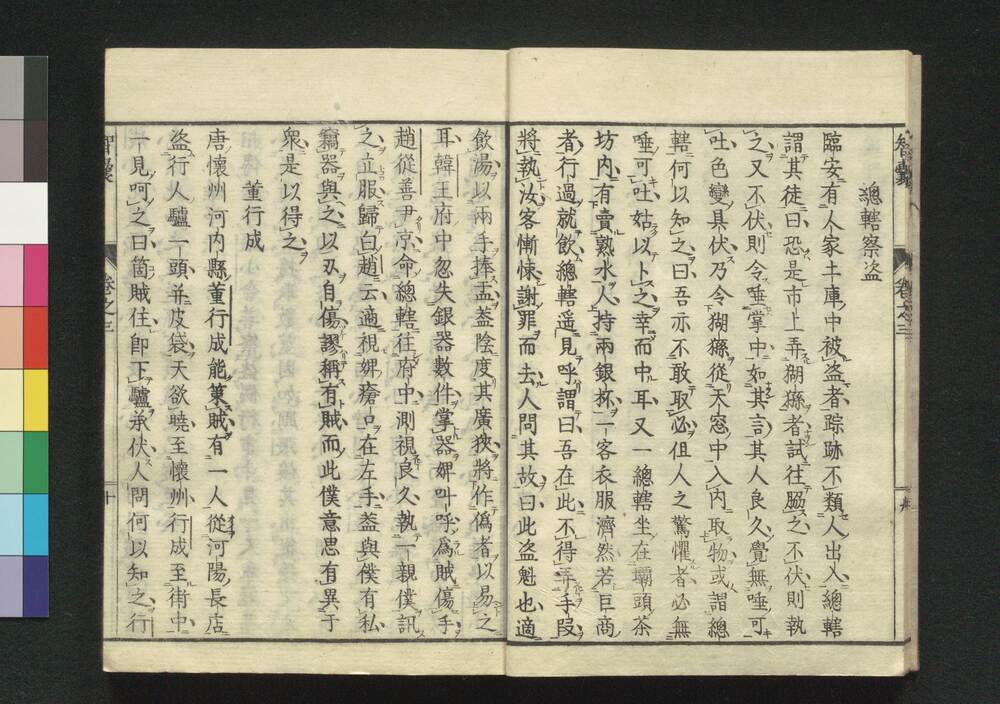 總轄察盜
臨安有人家土庫中被盜者踪跡不類人出入總轄
謂其徒曰恐是市上弄猢猻者試往脇之不伏則執
之又不伏則令唾掌中如其言其人良久覺無唾可
吐色變具伏乃令猢猻從天窓中入内取物或謂總
轄何以知之曰吾亦不敢取必但人之驚懼者必無
唾可吐姑以卜之幸而中耳又一總轄坐在壩頭茶
坊内有賣熟水人持兩銀盃一客衣服濟然若巨商
者行過就飲總轄遥見呼謂曰吾在此不得弄手段
將執汝客慚悚謝罪而去人問其故曰此盜魁也適
飲湯以兩手捧盂蓋陰度其廣狹將作僞者以易之
耳韓王府中忽失銀器數件掌器婢叫呼爲賊傷手
趙從善尹京命總轄往府中測視良久執一親僕訊
之立服歸白趙云適視婢瘡口在左手蓋與僕有私
竊器與之以刃自傷謬稱有賊而此僕意思有異于
衆是以得之
董行成
唐懷州河内縣董行成能策賊有一人從河陽長店
盜行人驢一頭并皮袋天欲曉至懷州行成至街中
一見呵之曰箇賊住即下驢承伏人問何以知之行
智囊
卷之三
十